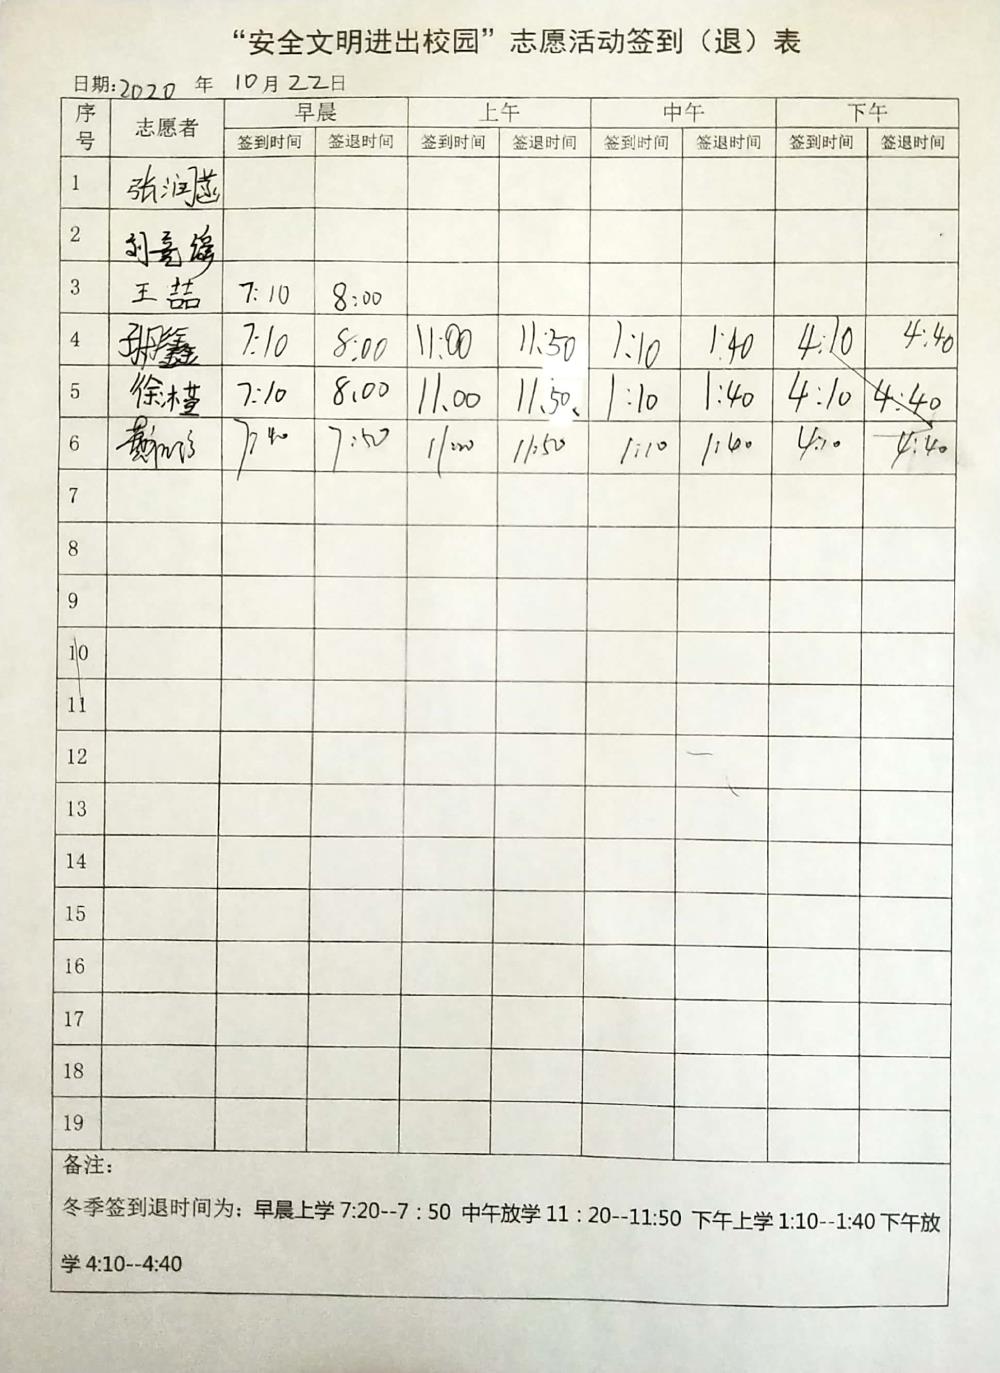 “安全文明进出校园”志愿活动签到（退）表
日期:2020 年 10月22日
序号 志愿者 早晨 上午 中午 下午
签到时间 签退时间 签到时间 签退时间 签到时间 签退时间 签到时间 签退时间
1 张润菡
2 刘
3 王喆 7:10 8:00
4 鑫 7:10 8:00 11:00 11:50 1:10 1:40 4:10 4:40
5 徐沐萱 7:10 8.00 11.00 11.50. 1:10 1:40 4:10 4:40
6 7:40 7:50 11:00 11:50 1:10 1:40 4:10 4:40
7
8
9
10
11
12
13
14
15
16
17
18
19
备注：
冬季签到退时间为：早晨上学7:20--7：50 中午放学11：20--11:50 下午上学1:10--1:40下午放
学4:10--4:40